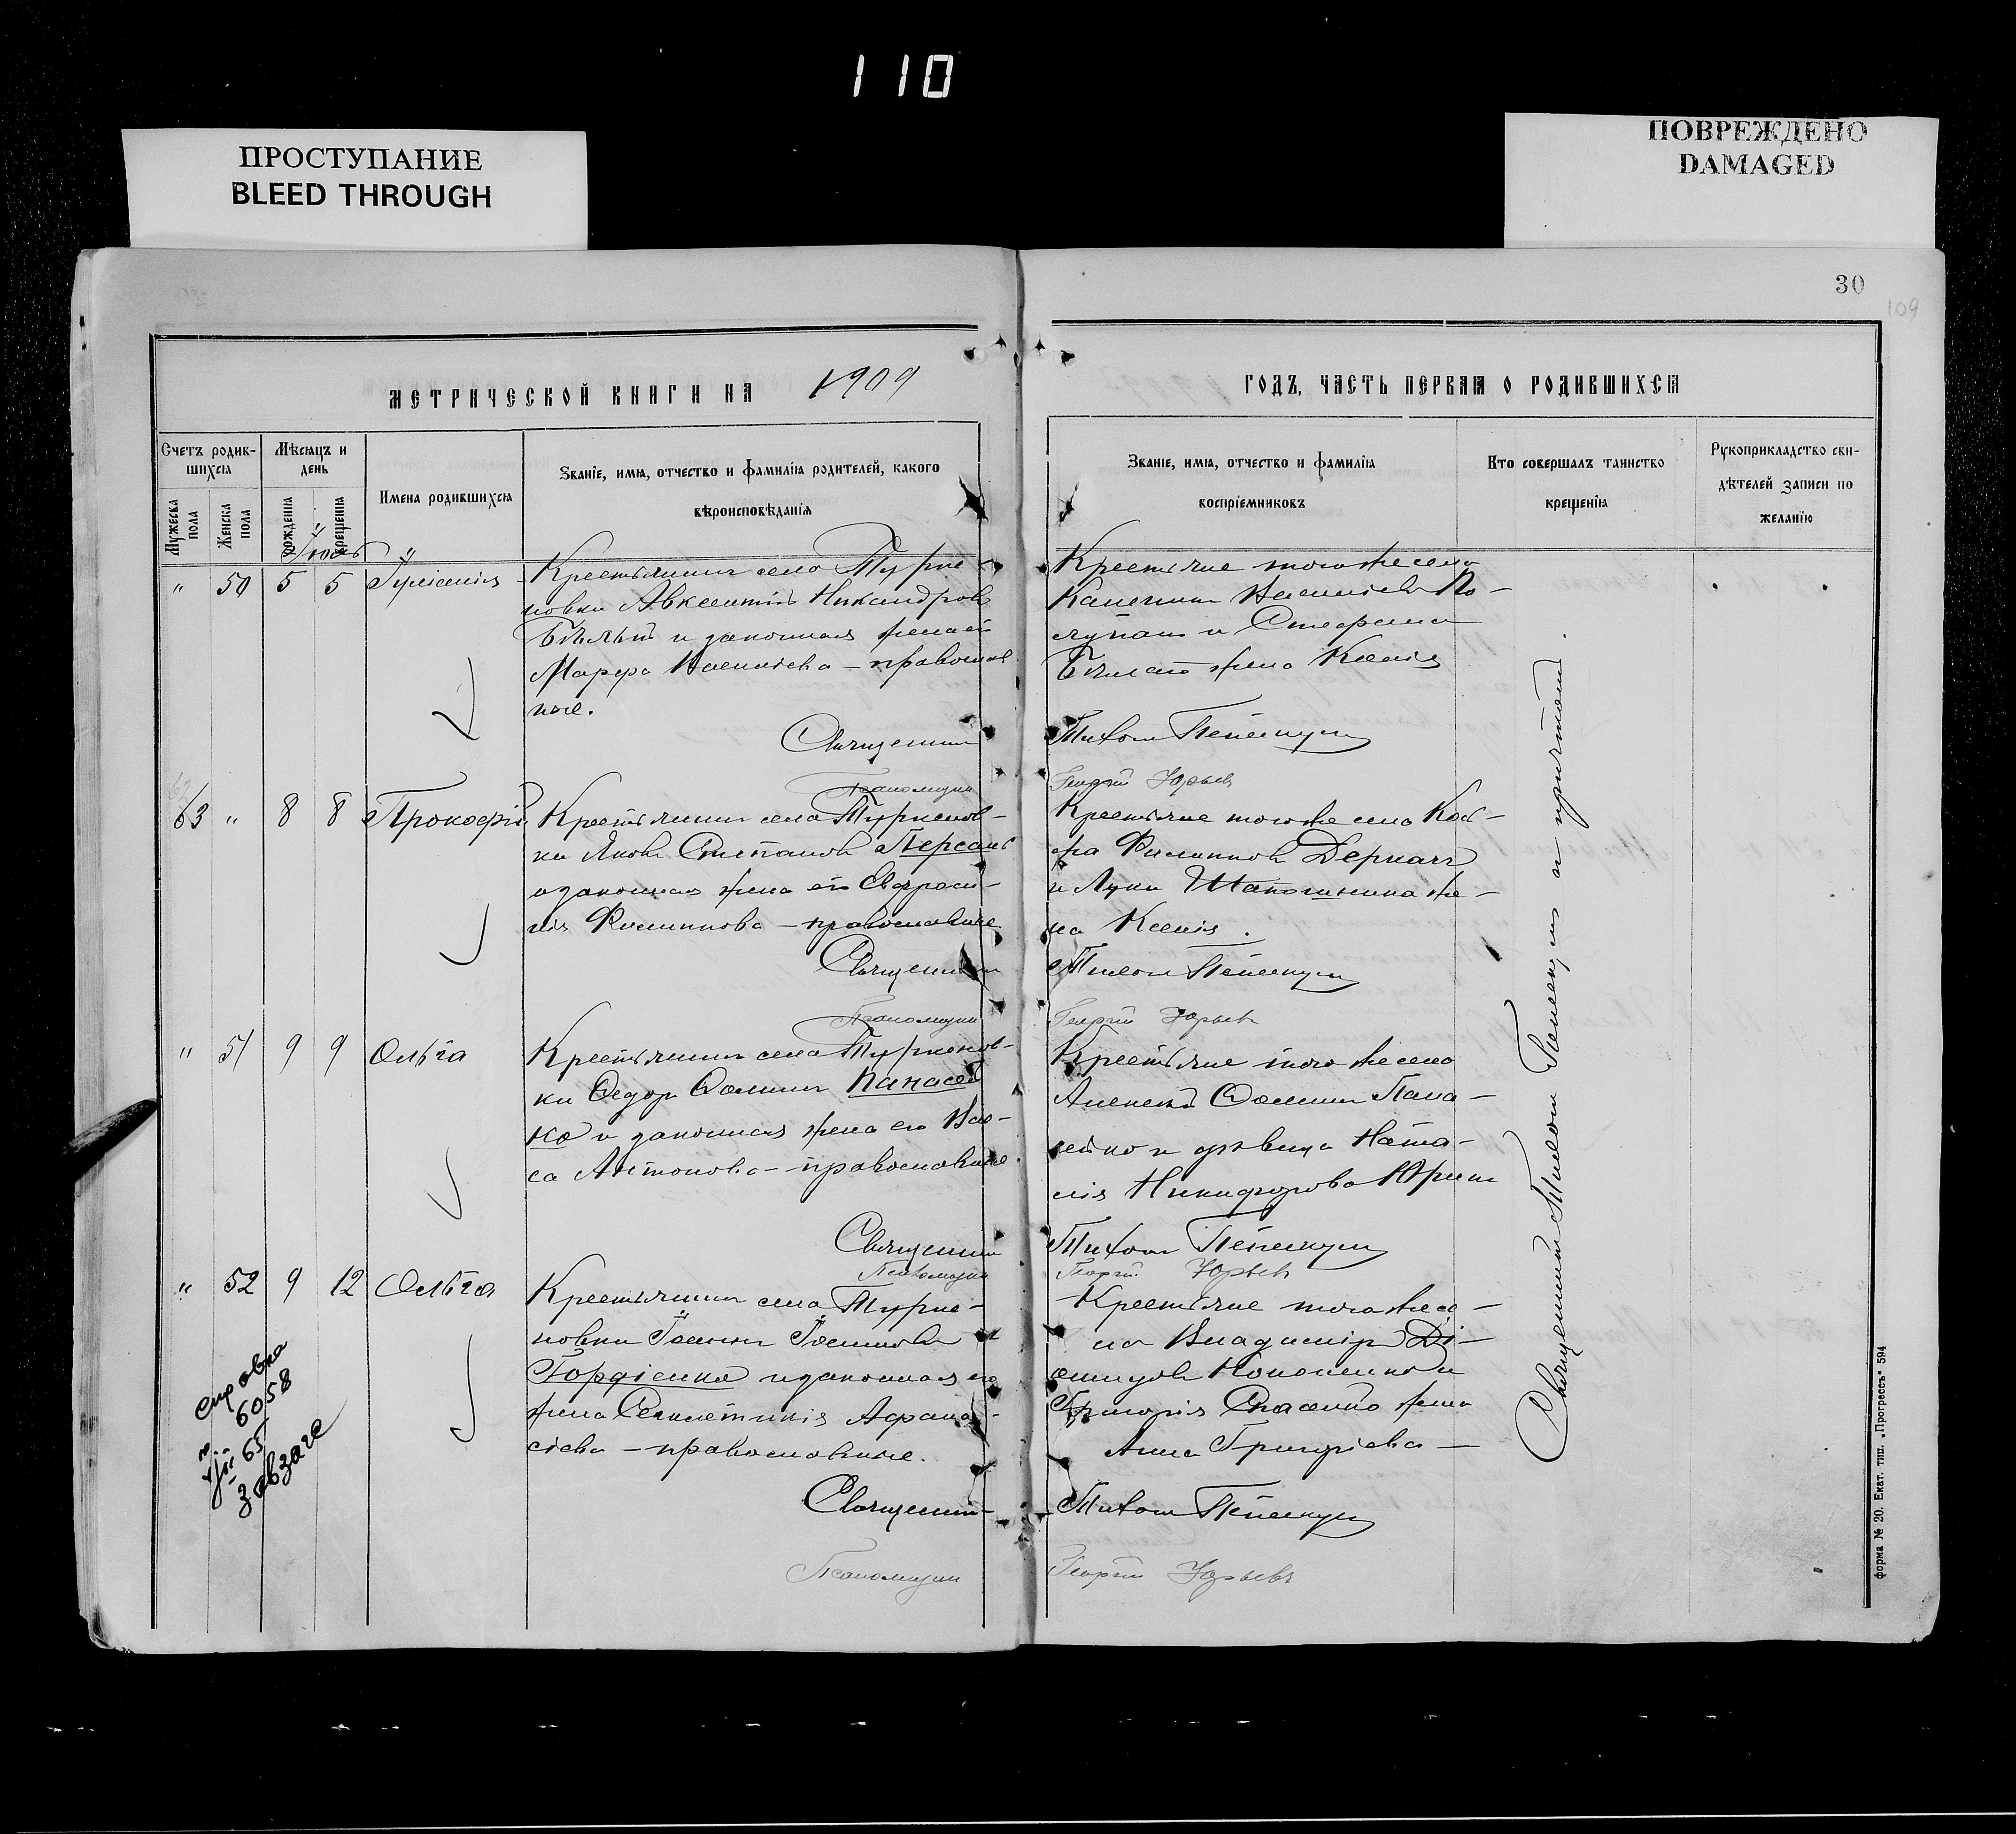 110
ПРОСТУПАНИЕ
BLEED THROUGH
ПОВРЕЖДЕНО
DAMAGED
30
109
МЕТРИЧЕСКОЙ КНИГИ НА 1909
ГОДЪ, ЧАСТЬ ПЕРВАЯ О РОДИВШИХСЯ
Счетъ родив-
шихся
Мужеска пола
Женска пола
Мѣсяцъ и
день
рожденія
крещенія
Имена родившихся
Званіе, имя, отчество и фамилія родителей, какого
вѣроисповѣданія
Званіе, имя, отчество и фамилія
воспріемниковъ
Кто совершалъ таинство
крещенія
Рукоприкладство сви-
дѣтелей записи по
желанію
Іюль
" 50 5 5 Іуліанія
Крестьянинъ села Турке-
новки Авксентій Никандровъ
Бѣлый и законная жена его
Марѳа Васильева – православ
ные.
Священникъ
Псаломщикъ
Крестьяне того же села
Василіевъ По-
лупанъ и Стефана
Бѣлаго жена Ксенія
Тихонъ
Георгій Юрьевъ
63 " 8 8 Прокофій
Крестьянинъ села Туркенов-
ки Яковъ Степановъ Персань
и законная жена его Евфроси-
нія Филиппова – православные
Священникъ
Псаломщикъ
Крестьяне того же села
Филипповъ Деркачъ
и Луки Шапошника же-
на Ксенія.
Тихонъ
Георгій Юрьевъ
" 51 9 9 Ольга
Крестьянинъ села Туркенов-
ки Ѳедоръ Ѳоминъ Панасей
ко и законная жена его Вас-
са Антонова – православные.
Священникъ
Псаломщикъ
Крестьяне того же села
Алексѣй Ѳоминъ Пана-
сейко и дѣвица Ната-
лія Никифорова
Тихонъ
Георгій Юрьевъ
" 52 9 12 Ольга
Крестьянинъ села Турке-
новки Іосифъ Іосифовъ
Гордіенко и законная его
жена Синклетикія Афана-
сіева – православные.
Священникъ
Псаломщикъ
Крестьяне того же се-
ла Владиміръ Ді-
Кононенко и
Григорія жена
Анна Григорьева –
Тихонъ
Георгій Юрьевъ
справка
6058
65
завзагс
Священникъ Тихонъ и причтомъ.
форма № 20. Екат. тип. „Прогрессъ" 594